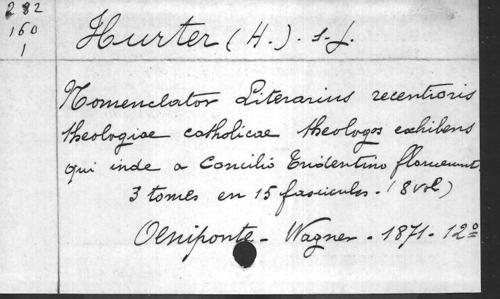 282
160
1
Hurter (H.). s-j.
Nomenclator Literarius recentioris
theologiae catholicae theologos exhibens
qui inde a Concilio Tridentino floruerunt.
3 tomes en 15 fascicules. (8 vol)
Oeniponte - Wagner - 1871 - 12º